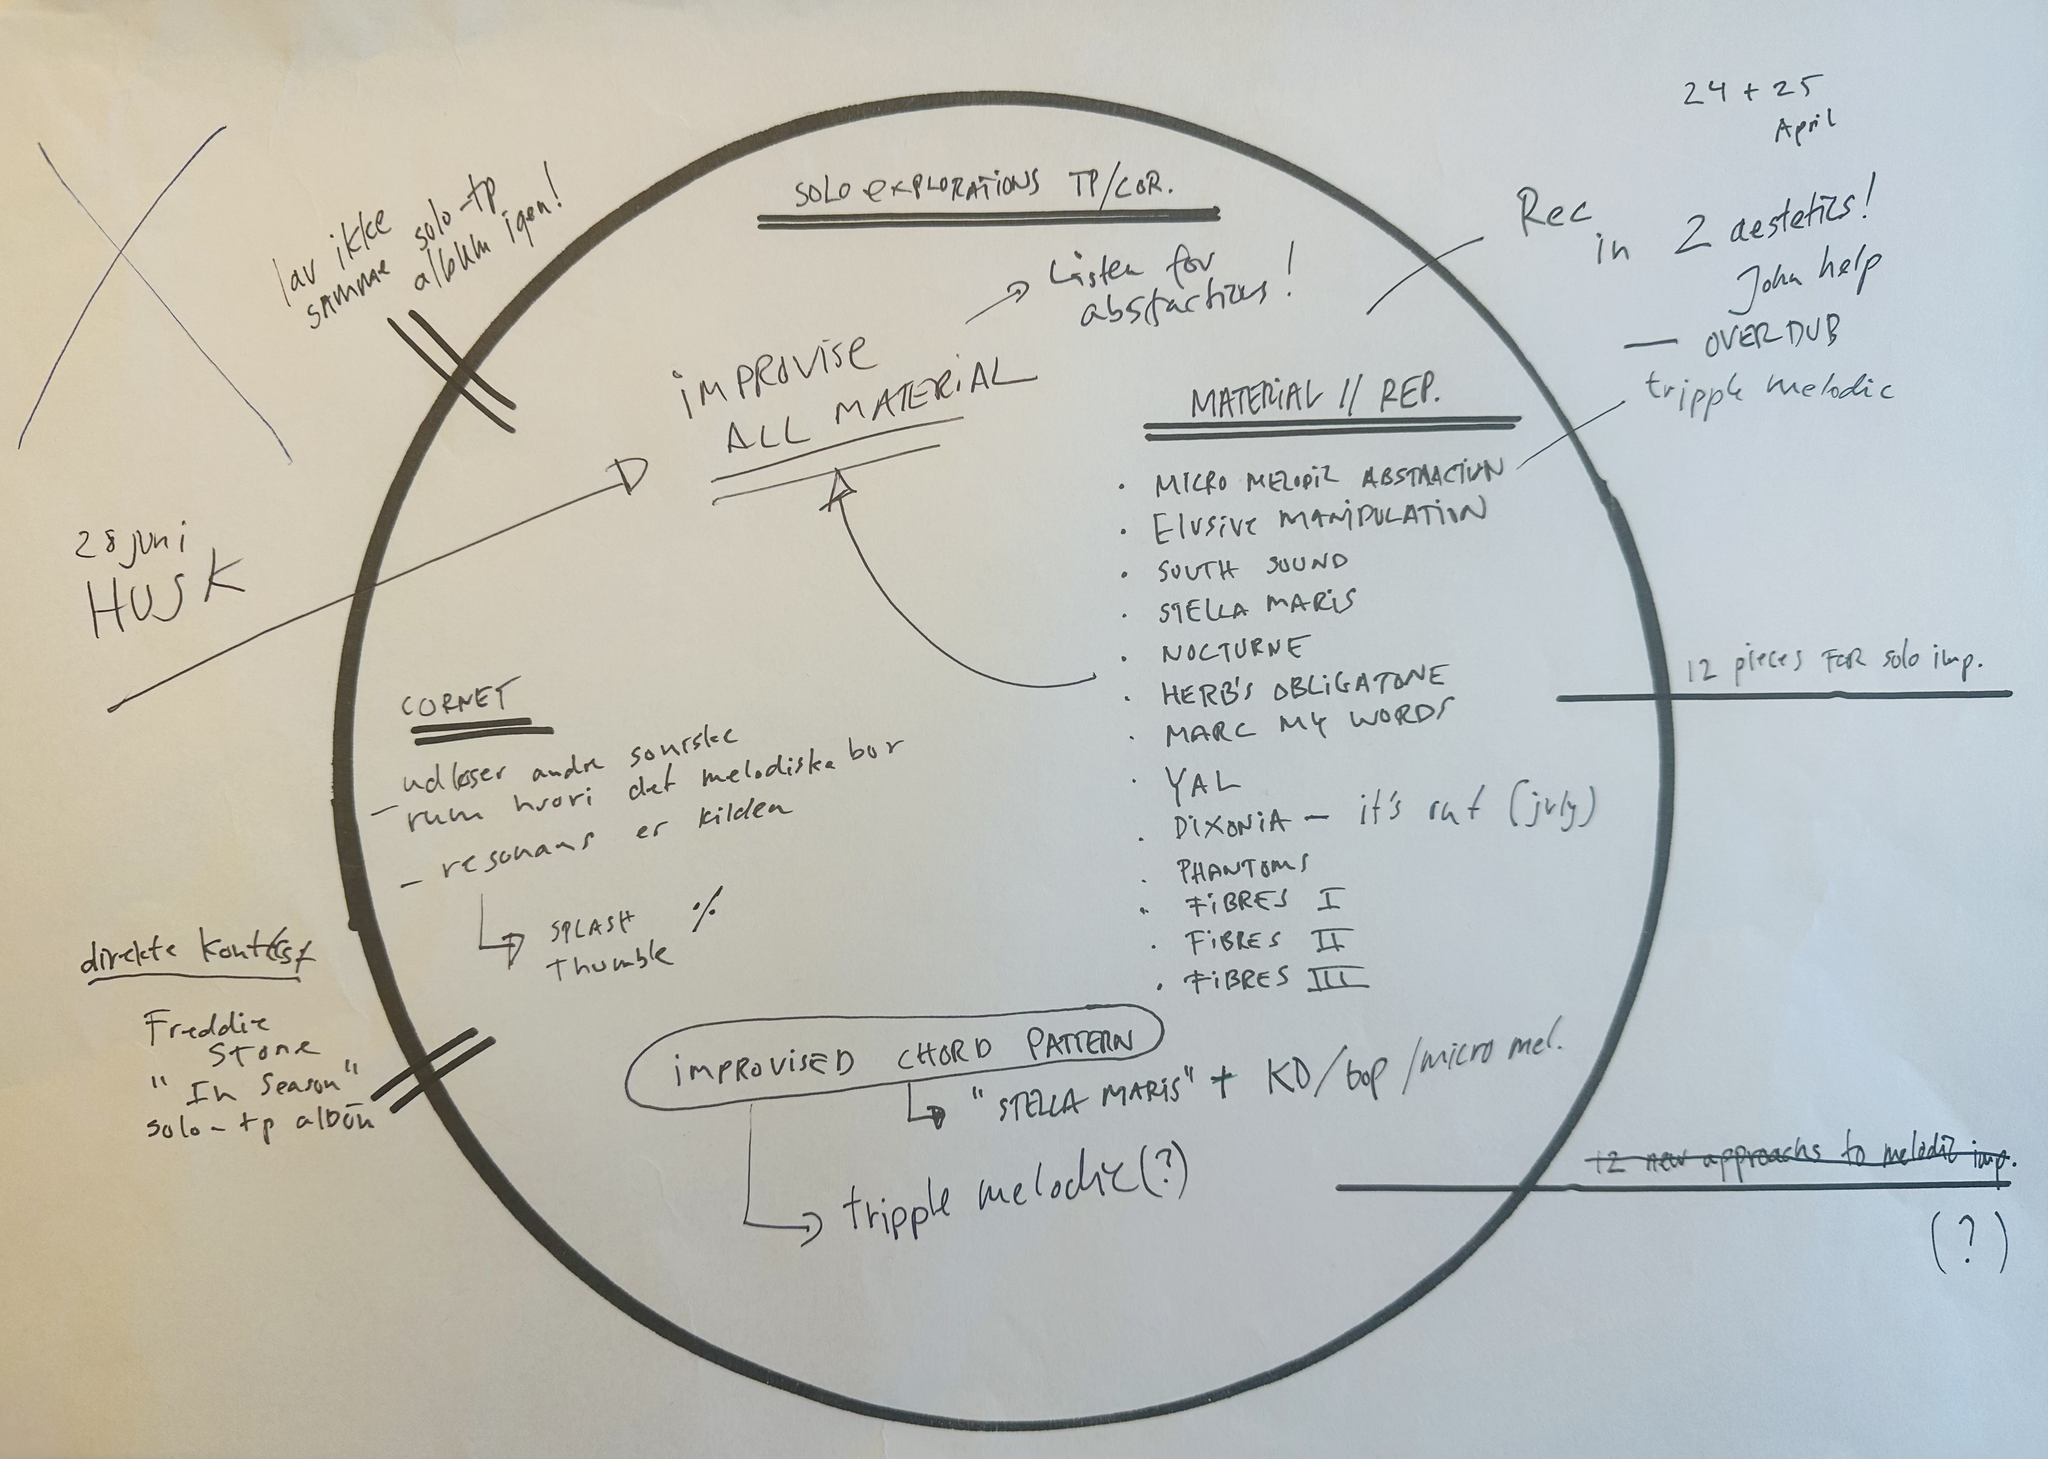 24 + 25
April
lav ikke
samme solo-tp
album igen!
SOLO EXPLORATIONS TP/COR.
Rec
in 2 aestetics!
John help
— OVERDUB
tripple melodic
Listen for
abstractions!
IMPROVISE
ALL MATERIAL
MATERIAL // REP.
· MICRO MELODIC ABSTRACTION
· ELUSIVE MANIPULATION
· SOUTH SOUND
· STELLA MARIS
· NOCTURNE
· HERB'S OBLIGATONE
· MARC MY WORDS
· YAL
· DIXONIA — it's out (july)
· PHANTOMS
· FIBRES I
· FIBRES II
· FIBRES III
28 juni
HUSK
12 pieces FOR solo imp.
CORNET
— udløser andre soniske
rum hvori det melodiske bor
— resonans er kilden
SPLASH %
thumble
direkte kontrast
Freddie
Stone
"In Season"
solo-tp album
IMPROVISED CHORD PATTERN
"STELLA MARIS" + KD/bop/micro mel.
tripple melodic (?)
12 new approachs to melodic imp.
(?)